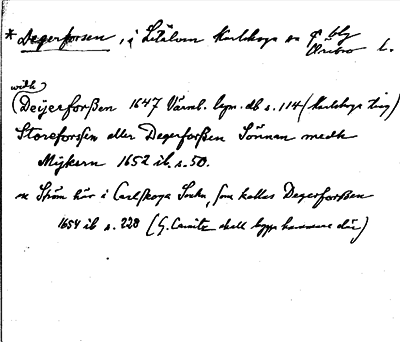 *Degerforsen, i Letälven Karlskoga sn Örebro l.
(Deijerforßen 1647 Värml. lgm. db s. 114 (Karlskoga ting)
Storeforssen eller Degerforßen Sünnan medh
Mijkern 1652 ib. s. 50.
Ström här i Carlskoga Sockn, som kalles Degerforßen
1654 ib s. 228 (G. skall bygga hammare där)